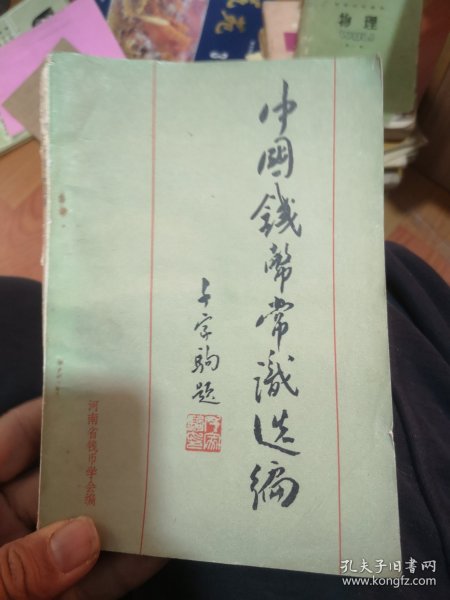 中國錢幣常識选編
千家驹题
河南省钱币学会编
物理
孔夫子旧书网
www.kongfz.com